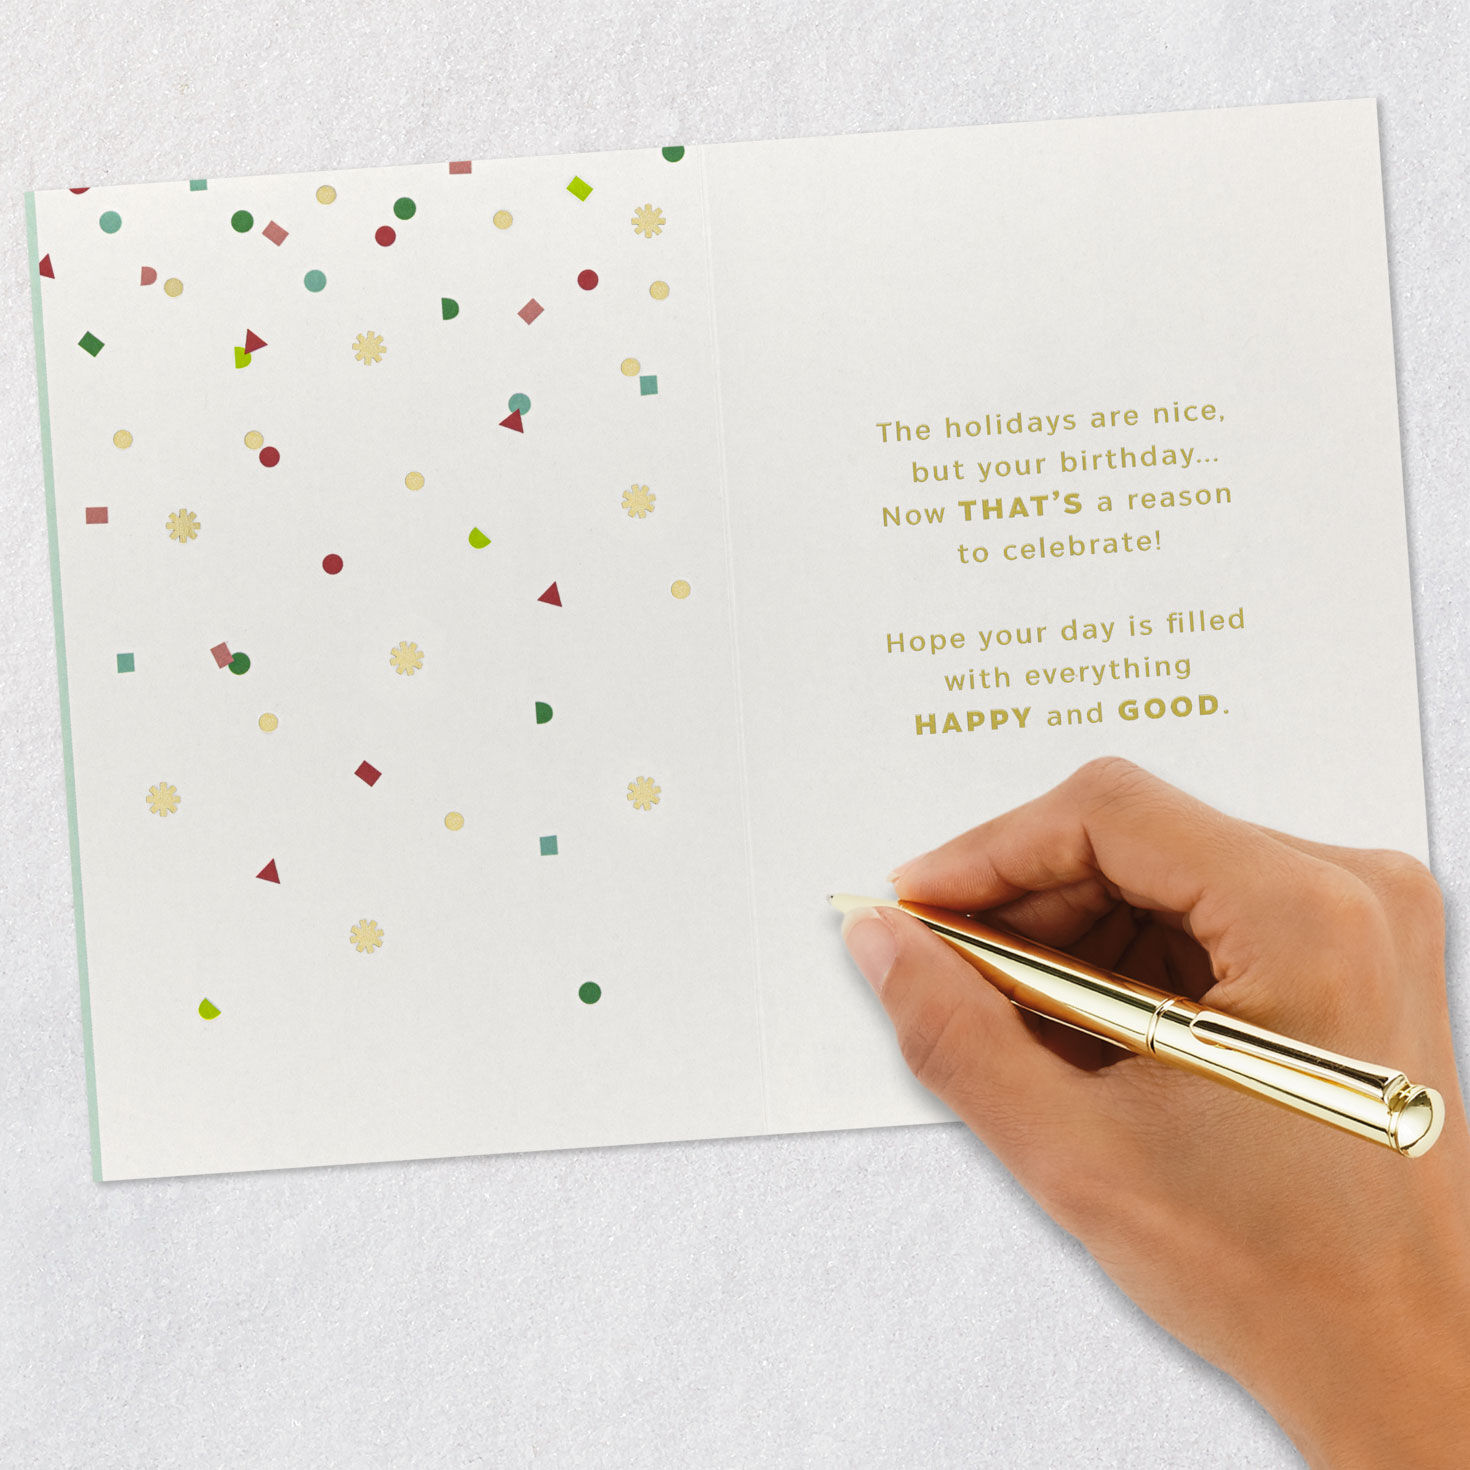 The holidays are nice,
but your birthday...
Now THAT'S a reason
to celebrate!
Hope your day is filled
with everything
HAPPY and GOOD.